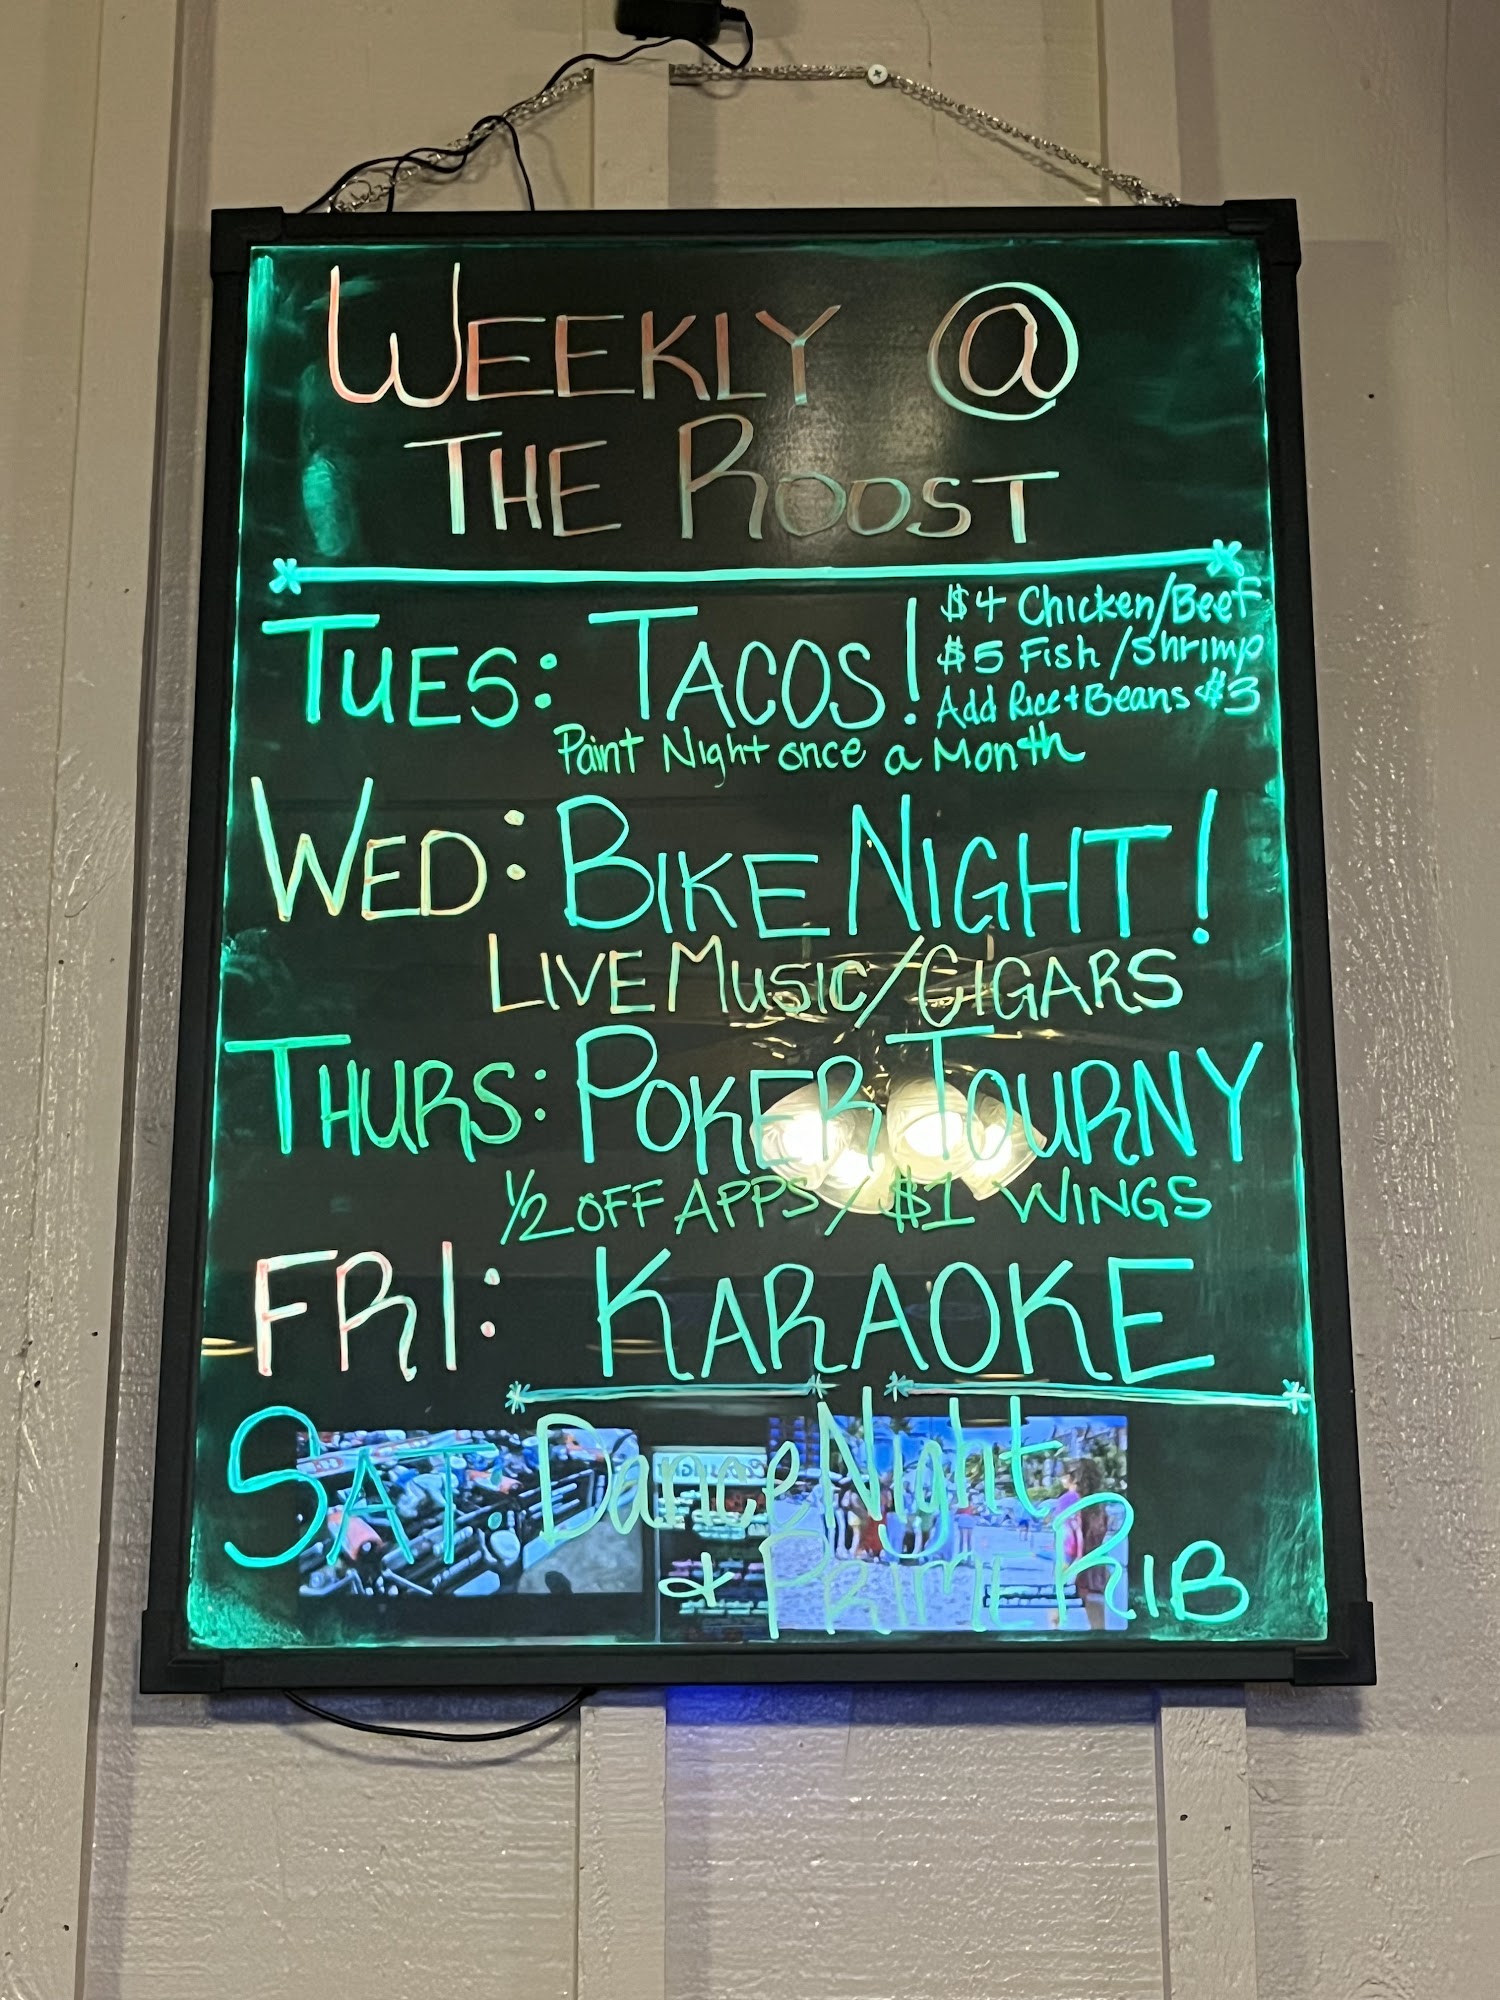 WEEKLY @
THE ROOST
TUES: TACOS!
$4 Chicken/Beef
$5 Fish/Shrimp
Add Rice + Beans $3
Paint Night once a Month
WED: BIKE NIGHT!
LIVE MUSIC/CIGARS
THURS: POKER TOURNY
1/2 OFF APPS / $1 WINGS
FRI: KARAOKE
SAT: Dance Night
& PRIME RIB